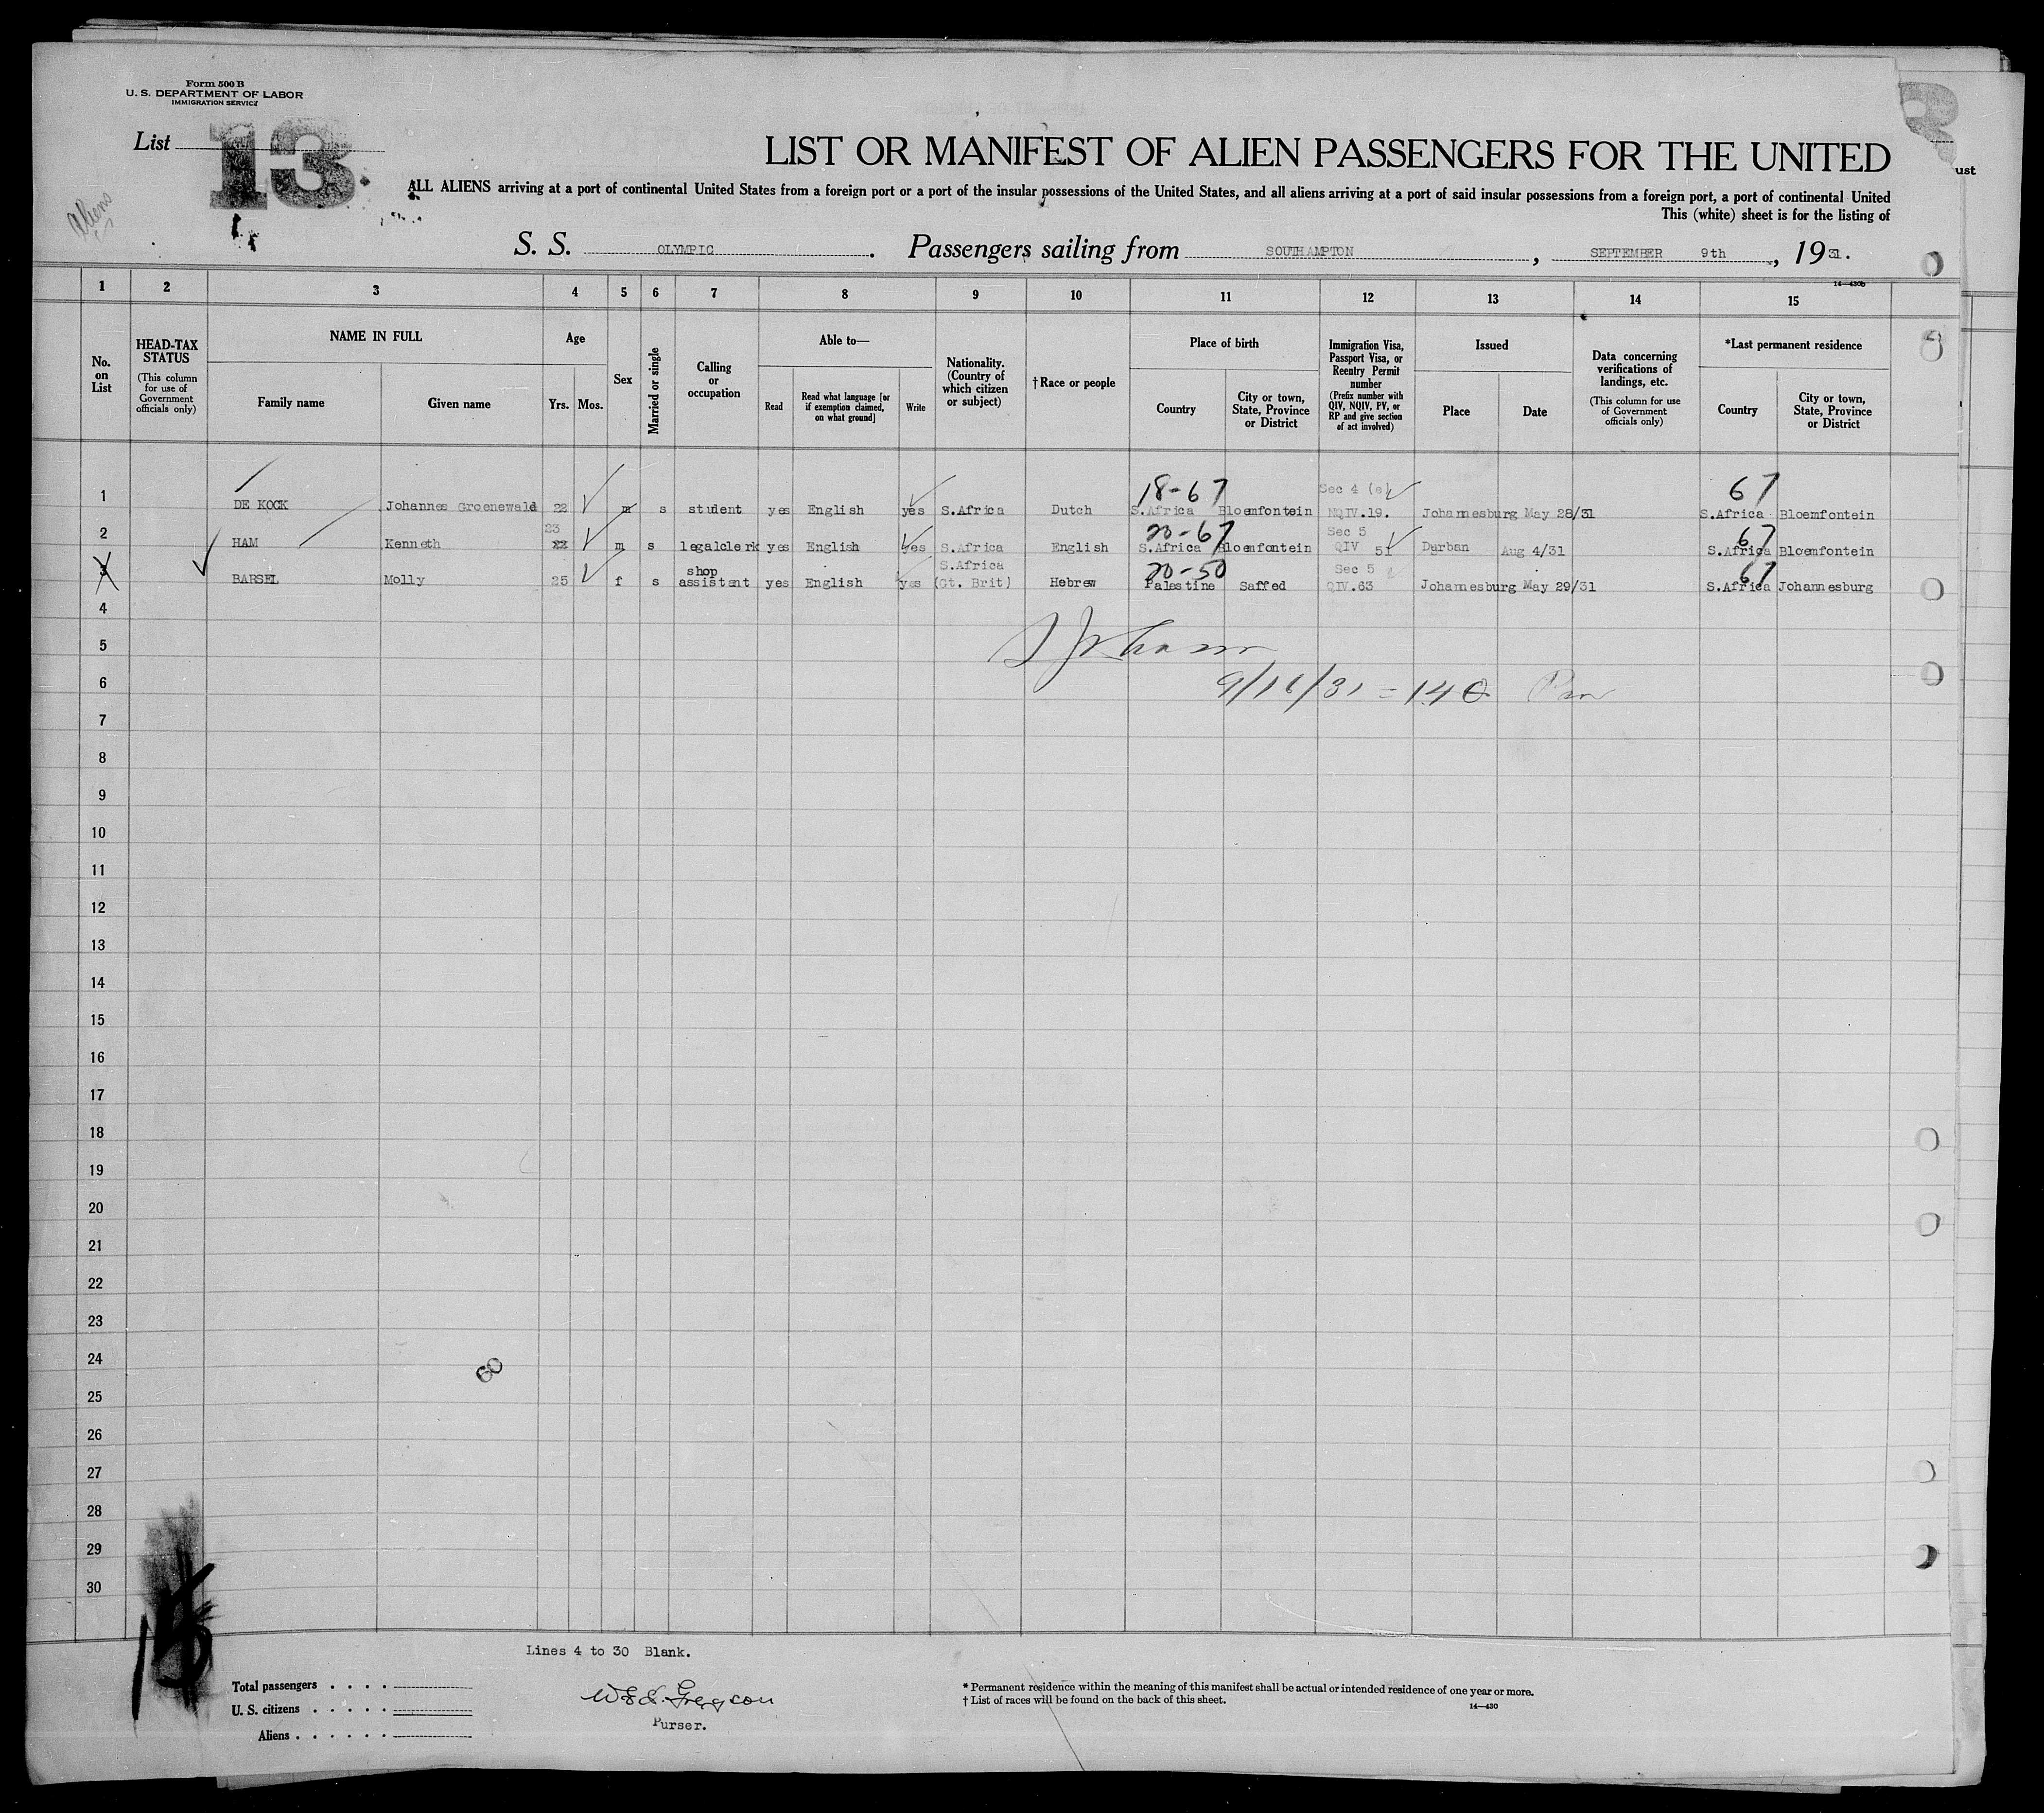 Form 500 B
U. S. DEPARTMENT OF LABOR
IMMIGRATION SERVICE
List 13
Aliens
LIST OR MANIFEST OF ALIEN PASSENGERS FOR THE UNITED
ALL ALIENS arriving at a port of continental United States from a foreign port or a port of the insular possessions of the United States, and all aliens arriving at a port of said insular possessions from a foreign port, a port of continental United
This (white) sheet is for the listing of
ust
S. S. OLYMPIC. Passengers sailing from SOUTHAMPTON, SEPTEMBER 9th, 1931.
14—430b
1 2 3 4 5 6 7 8 9 10 11 12 13 14 15
No. on List
HEAD-TAX STATUS
(This column for use of Government officials only)
NAME IN FULL
Family name
Given name
Age
Yrs. Mos.
Sex
Married or single
Calling or occupation
Able to—
Read
Read what language [or if exemption claimed, on what ground]
Write
Nationality. (Country of which citizen or subject)
† Race or people
Place of birth
Country
City or town, State, Province or District
Immigration Visa, Passport Visa, or Reentry Permit number
(Prefix number with QIV, NQIV, PV, or RP and give section of act involved)
Issued
Place
Date
Data concerning verifications of landings, etc.
(This column for use of Government officials only)
*Last permanent residence
Country
City or town, State, Province or District
18-67 Sec 4 (e) 67
1 DE KOCK Johannes Groenewald 22 m s student yes English yes S.Africa Dutch S.Africa Bloemfontein NQIV.19. Johannesburg May 28/31 S.Africa Bloemfontein
23 20-67 Sec 5 67
2 HAM Kenneth 22 m s legalclerk yes English yes S.Africa English S.Africa Bloemfontein QIV 51 Durban Aug 4/31 S.Africa Bloemfontein
shop S.Africa 20-50 Sec 5 67
3 BARSEL Molly 25 f s assistant yes English yes (Gt. Brit) Hebrew Palestine Saffed QIV.63 Johannesburg May 29/31 S.Africa Johannesburg
4
5
6 9/16/31 = 140 Pm
7
8
9
10
11
12
13
14
15
16
17
18
19
20
21
22
23
24
60
25
26
27
28
29
30
15
Lines 4 to 30 Blank.
Total passengers . . . .
U. S. citizens . . . . .
Aliens . . . . . .
Purser.
* Permanent residence within the meaning of this manifest shall be actual or intended residence of one year or more.
† List of races will be found on the back of this sheet.
14—430